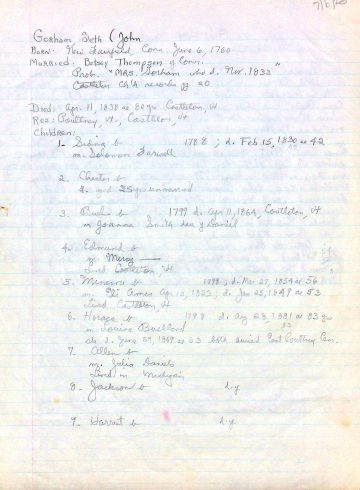 Gorham, Seth (John
Born: New Fairfield, Conn June 6, 1760
Married: Betsey Thompson of Conn.
Prob. "Mrs. Gorham who d. Nov. 1833"
Castleton Ch'h records pg 20
Died: Apr. 11, 1838 ae 80 yr Castleton, Vt
Res: Poultney, Vt., Castleton, Vt
Children:
1- b 1788; d. Feb 15, 1830 ae 42
m. Solomon Farwell
2. Chester b
d. aged 25 yr unmarried
3. b 1799 d. Apr 11, 1864, Castleton, Vt
m Joanna Smith dau of Daniel
4. Edmund b
m. Mercy —
Lived Castleton, Vt
5. Minerva b 1798; d. Mar 27, 1854 ae 56
m. Eli Ames Apr 10, 1823; d. Jan 25, 1847 ae 53
Lived Castleton, Vt
6. Horace b 1798 d. Aug 23, 1881 ae 83 yr
m. Louisa
she d. June 29, 1869 ae 63 both buried East Poultney Cem.
7. Allen b
m. Julia Daniels
Lived in Michigan
8. Jackson b d.y
9. Harriet b d.y